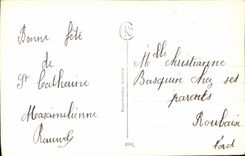 Bonne fête
de
Ste Catherine
Maximilienne
CK
Mlle Christianne
Basquin chez ses
parents
Roubaix
Nord